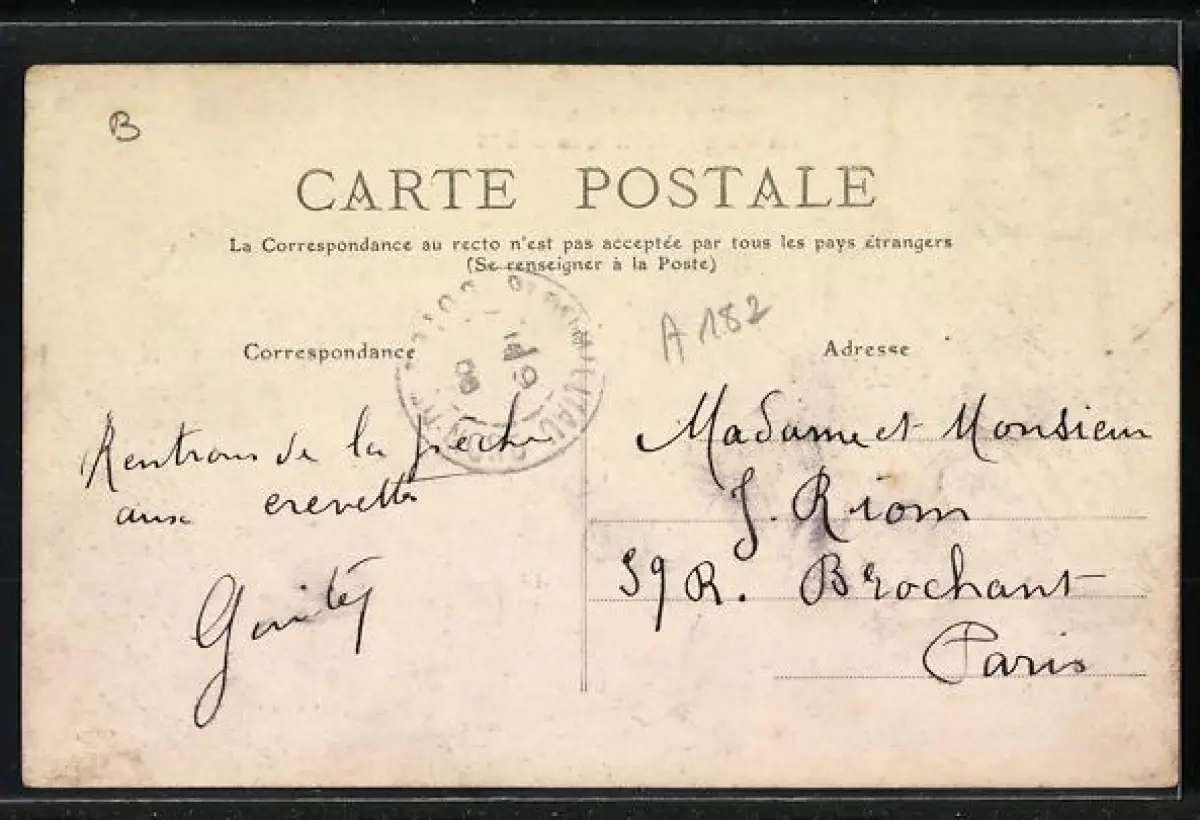 B
CARTE POSTALE
La Correspondance au recto n'est pas acceptée par tous les pays étrangers
(Se renseigner à la Poste)
A 182
Correspondance
Rentrons de la pêche
aux crevettes
Adresse
Madame et Monsieur
J. Riom
59 R. Brochant
Paris